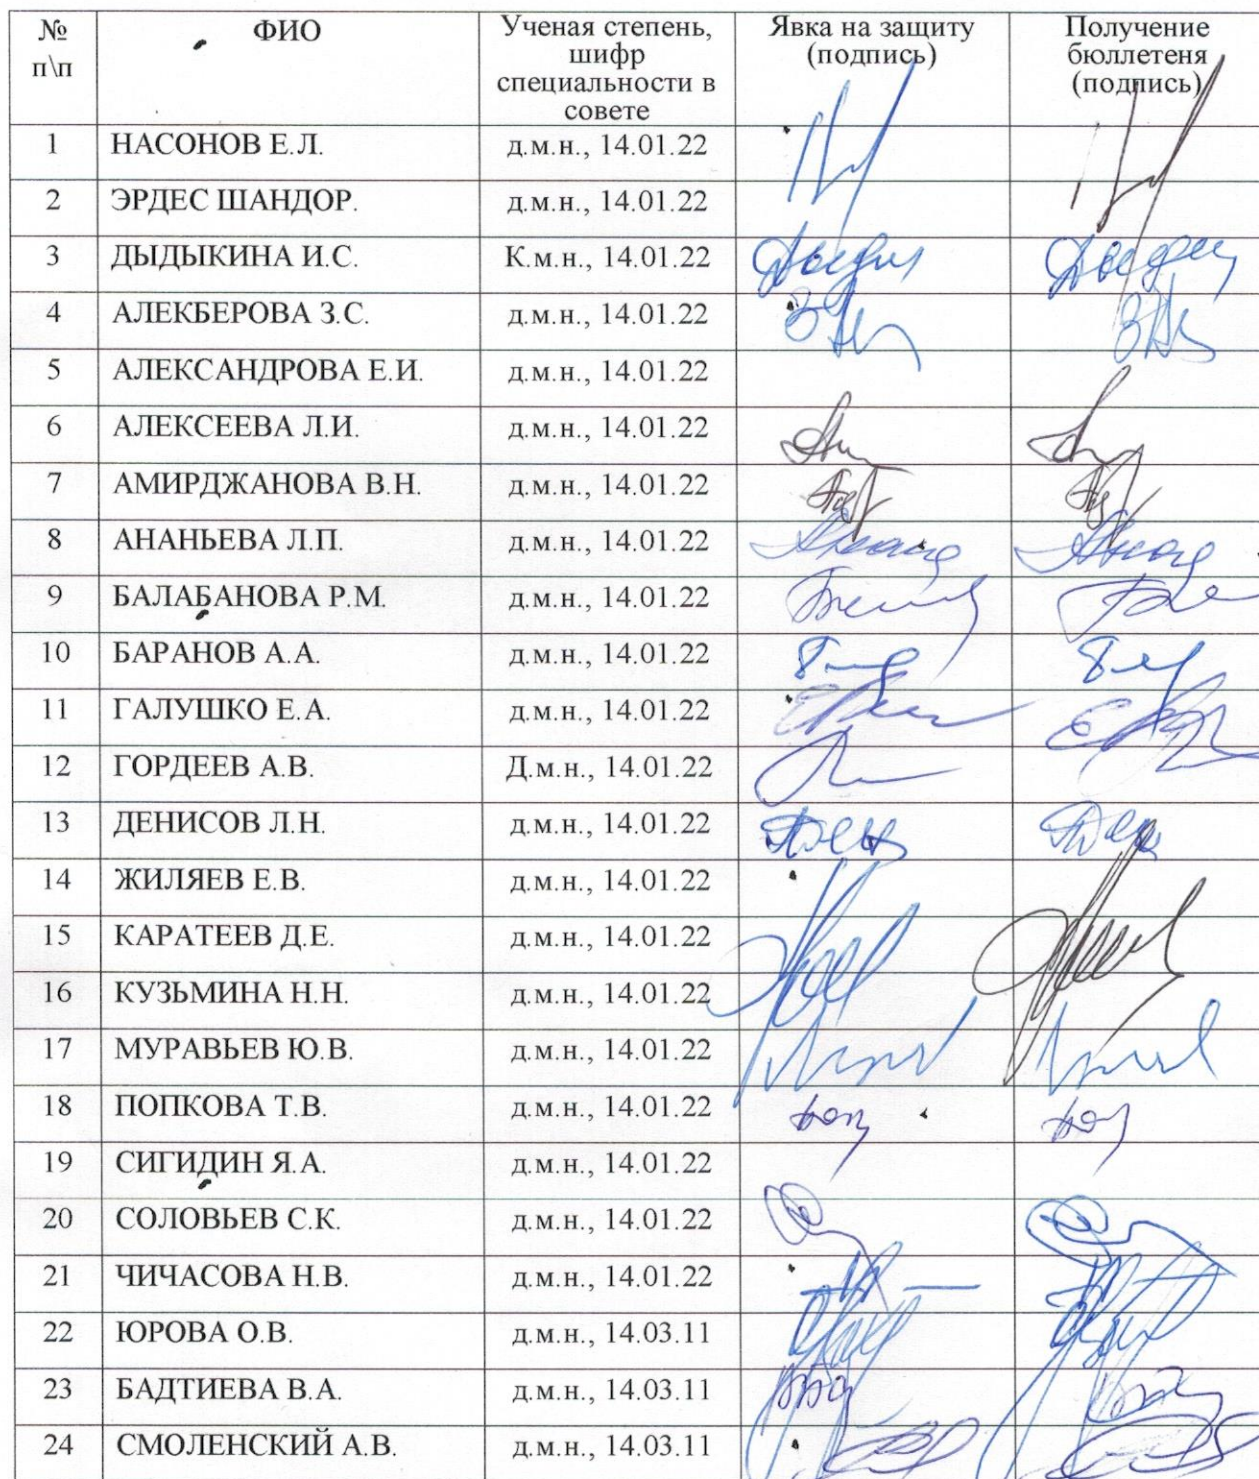 № п\п ФИО Ученая степень, шифр специальности в совете Явка на защиту (подпись) Получение бюллетеня (подпись)
1 НАСОНОВ Е.Л. д.м.н., 14.01.22
2 ЭРДЕС ШАНДОР. д.м.н., 14.01.22
3 ДЫДЫКИНА И.С. К.м.н., 14.01.22
4 АЛЕКБЕРОВА З.С. д.м.н., 14.01.22
5 АЛЕКСАНДРОВА Е.И. д.м.н., 14.01.22
6 АЛЕКСЕЕВА Л.И. д.м.н., 14.01.22
7 АМИРДЖАНОВА В.Н. д.м.н., 14.01.22
8 АНАНЬЕВА Л.П. д.м.н., 14.01.22
9 БАЛАБАНОВА Р.М. д.м.н., 14.01.22
10 БАРАНОВ А.А. д.м.н., 14.01.22
11 ГАЛУШКО Е.А. д.м.н., 14.01.22
12 ГОРДЕЕВ А.В. Д.м.н., 14.01.22
13 ДЕНИСОВ Л.Н. д.м.н., 14.01.22
14 ЖИЛЯЕВ Е.В. д.м.н., 14.01.22
15 КАРАТЕЕВ Д.Е. д.м.н., 14.01.22
16 КУЗЬМИНА Н.Н. д.м.н., 14.01.22
17 МУРАВЬЕВ Ю.В. д.м.н., 14.01.22
18 ПОПКОВА Т.В. д.м.н., 14.01.22
19 СИГИДИН Я.А. д.м.н., 14.01.22
20 СОЛОВЬЕВ С.К. д.м.н., 14.01.22
21 ЧИЧАСОВА Н.В. д.м.н., 14.01.22
22 ЮРОВА О.В. д.м.н., 14.03.11
23 БАДТИЕВА В.А. д.м.н., 14.03.11
24 СМОЛЕНСКИЙ А.В. д.м.н., 14.03.11